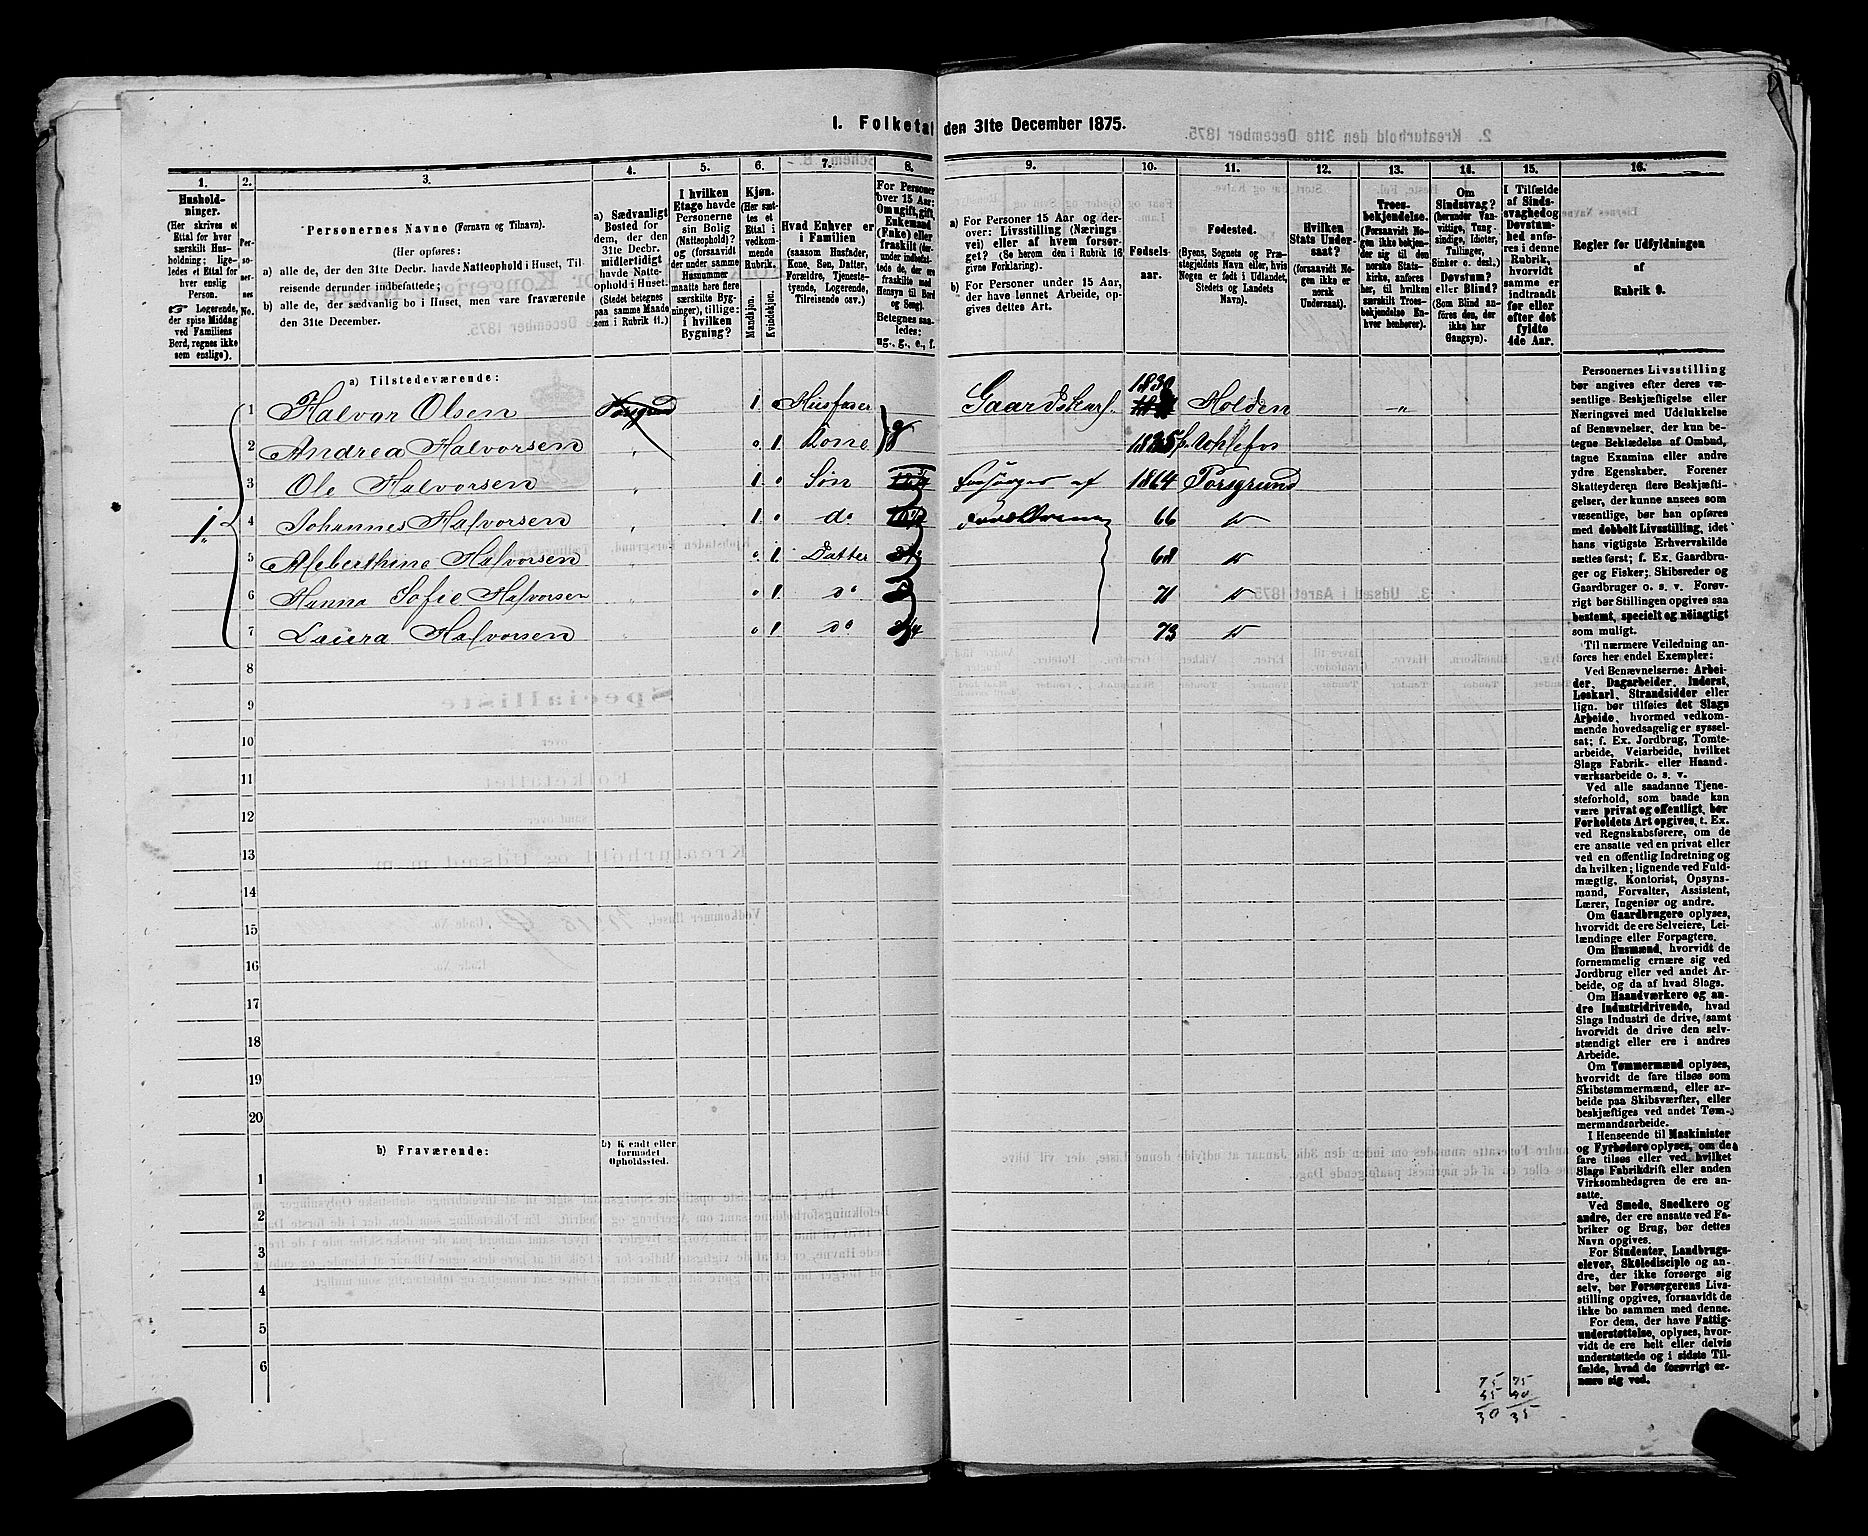 1. Folketal den 31te December 1875.
1.
2.
3.
4.
5.
6.
7.
8.
9.
10.
11.
12.
13.
14.
15.
16.
Hushold-
ninger.
(Her skrives et
Ettal for hver
særskilt Hus-
holdning; lige-
ledes et Ettal for
hver enslig
Person.
☞ Logerende,
der spise Middag
ved Familiens
Bord, regnes ikke
som enslige).
Per-
so-
ner-
nes
No.
Personernes Navne (Fornavn og Tilnavn).
(Her opføres:
a) alle de, der den 31te Decbr. havde Natteophold i Huset, Til-
reisende derunder indbefattede;
b) alle de, der sædvanlig bo i Huset, men vare fraværende
den 31te December.
a) Sædvanligt
Bosted for
dem, der den
31te Decbr.
midlertidigt
havde Natte-
ophold i Huset.
(Stedet betegnes
paa samme Maade
som i Rubrik 11.)
I hvilken
Etage havde
Personerne
sin Bolig
(Natteophold)?
og (forsaavidt
der under samme
Husnummer
maatte høre flere
særskilte Byg-
ninger), tillige:
i hvilken
Bygning?
Kjøn.
(Her sæt-
tes et
Ettal i
vedkom-
mende
Rubrik.
Mandkjøn.
Kvindekjøn.
Hvad Enhver er
i Familien
(saasom Husfader,
Kone, Søn, Datter,
Forældre, Tjeneste-
tyende, Logerende,
Tilreisende osv.)
For Personer
over 15 Aar:
Om ugift, gift,
Enkemand
(Enke) eller
fraskilt
Hensyn til Bord
og Seng).
Betegnes saa-
ledes:
ug., g., e., f.
a) For Personer 15 Aar og der-
over: Livsstilling (Nærings-
vei) eller af hvem forsør-
get? (Se herom den i Rubrik 16
givne Forklaring).
b) For Personer under 15 Aar,
der have lønnet Arbeide, op-
gives dettes Art.
Fødsels-
aar.
Fødested.
(Byens, Sognets og Præ-
stegjeldets Navn eller, hvis
Nogen er født i Udlandet,
Stedets og Landets
Navn).
Hvilken
Stats Under-
saat?
(forsaavidt No-
gen ikke er
norsk
Undersaat).
Troes-
bekjendelse.
(Forsaavidt No-
gen ikke bekjen-
der sig til den
norske Stats-
kirke, anføres
her, til hvilken
særskilt Troes-
bekjendelse En-
hver henhører).
Om
Sindssvag?
(herunder Van-
vittige, Tung-
sindige, Idioter,
Tullinger,
Sinker o. desl.)
Døvstum?
eller Blind?
(Som Blind an-
føres den, der
ikke har
Gangsyn).
I Tilfælde
af Sinds-
svaghed og
Døvstum-
hed anfø-
res i denne
Rubrik,
hvorvidt
samme er
indtraadt
før eller
efter det
fyldte
4de Aar.
Regler for Udfyldningen
af
Rubrik 9.
a) Tilstedeværende:
1 Halvor Olsen Porsgrund 1 Husfader Gaardskarl. 1830 Holden „
2 Andrea Halvorsen „ 0 1 Kone g 1835 Uhlefos
3 Ole Halvorsen „ 1 0 Søn Forsørges af 1864 Porsgrund
4 Johannes Halvorsen „ 1 0 do Forældrene 66 do
5 Aleberthine Halvorsen „ 0 1 Datter 68 do
6 Hanna Sofie Halvorsen „ 0 1 do 71 do
7 Laura Halvorsen „ 0 1 do 73 do
1.
8
9
10
11
12
13
14
15
16
17
18
19
20
b) Fraværende:
b) Kjendt eller
formodet
Opholdssted.
1
2
3
4
5
6
Personernes Livsstilling
bør angives efter deres væ-
sentlige Beskjæftigelse eller
Næringsvei med Udelukkelse
af Benævnelser, der kun be-
tegne Beklædelse af Ombud,
tagne Examina eller andre
ydre Egenskaber. Forener
Skatteyderen flere Beskjæfti-
gelser, der kunne ansees som
væsentlige, bør han opføres
med dobbelt Livsstilling, idet
hans vigtigste Erhvervskilde
sættes først; f. Ex. Gaardbru-
ger og Fisker; Skibsreder og
Gaardbruger o. s. v. Forøv-
rigt bør Stillingen opgives saa
bestemt, specielt og nøiagtigt
som muligt.
Til nærmere Veiledning an-
føres her endel Exempler:
Ved Benævnelserne: Arbei-
der, Dagarbeider, Inderst,
Løskarl, Strandsidder eller
lign. bør tilføies det Slags
Arbeide, hvormed vedkom-
mende hovedsagelig er syssel-
sat; f. Ex. Jordbrug, Tomte-
arbeide, Veiarbeide, hvilket
Slags Fabrik- eller Haand-
værksarbeide o. s. v.
Ved alle saadanne Tjene-
steforhold, som baade kan
være privat og offentligt, bør
Forholdets Art opgives, t. Ex.
ved Regnskabsførere, om de
ere ansatte ved en privat eller
ved en offentlig Indretning og
da hvilken; lignende ved Fuld-
mægtig, Kontorist, Opsyns-
mand, Forvalter, Assistent,
Lærer, Ingeniør og andre.
Om Gaardbrugere oplyses,
hvorvidt de ere Selveiere, Lei-
lændinge eller Forpagtere.
Om Husmænd, hvorvidt de
fornemmelig ernære sig ved
Jordbrug eller ved andet Ar-
beide, og da af hvad Slags.
Om Haandværkere og an-
dre Industridrivende, hvad
Slags Industri de drive, samt
hvorvidt de drive den selv-
stændigt eller ere i andres
Arbeide.
Om Tømmermænd oplyses,
hvorvidt de fare tilsøs som
Skibstømmermænd, eller ar-
beide paa Skibsværfter, eller
beskjæftiges ved andet Tøm-
mermandsarbeide.
I Henseende til Maskinister
og Fyrbødere oplyses, om de
fare tilsøs eller ved hvilket
Slags Fabrikdrift eller anden
Virksomhedsgren de ere an-
satte.
Ved Smede, Snedkere og
andre, der ere ansatte ved Fa-
briker og Brug, bør dettes
Navn opgives.
For Studenter, Landbrugs-
elever, Skoledisciple og an-
dre, der ikke forsørge sig
selv, bør Forsørgerens Livs-
stilling opgives, forsaavidt de
ikke bo sammen med denne.
For dem, der have Fattig-
understøttelse, oplyses, hvor-
vidt de ere helt eller delvis
understøttede og i sidste Til-
fælde, hvad de forøvrigt er-
nære sig ved.
75 75
45 40
30 35